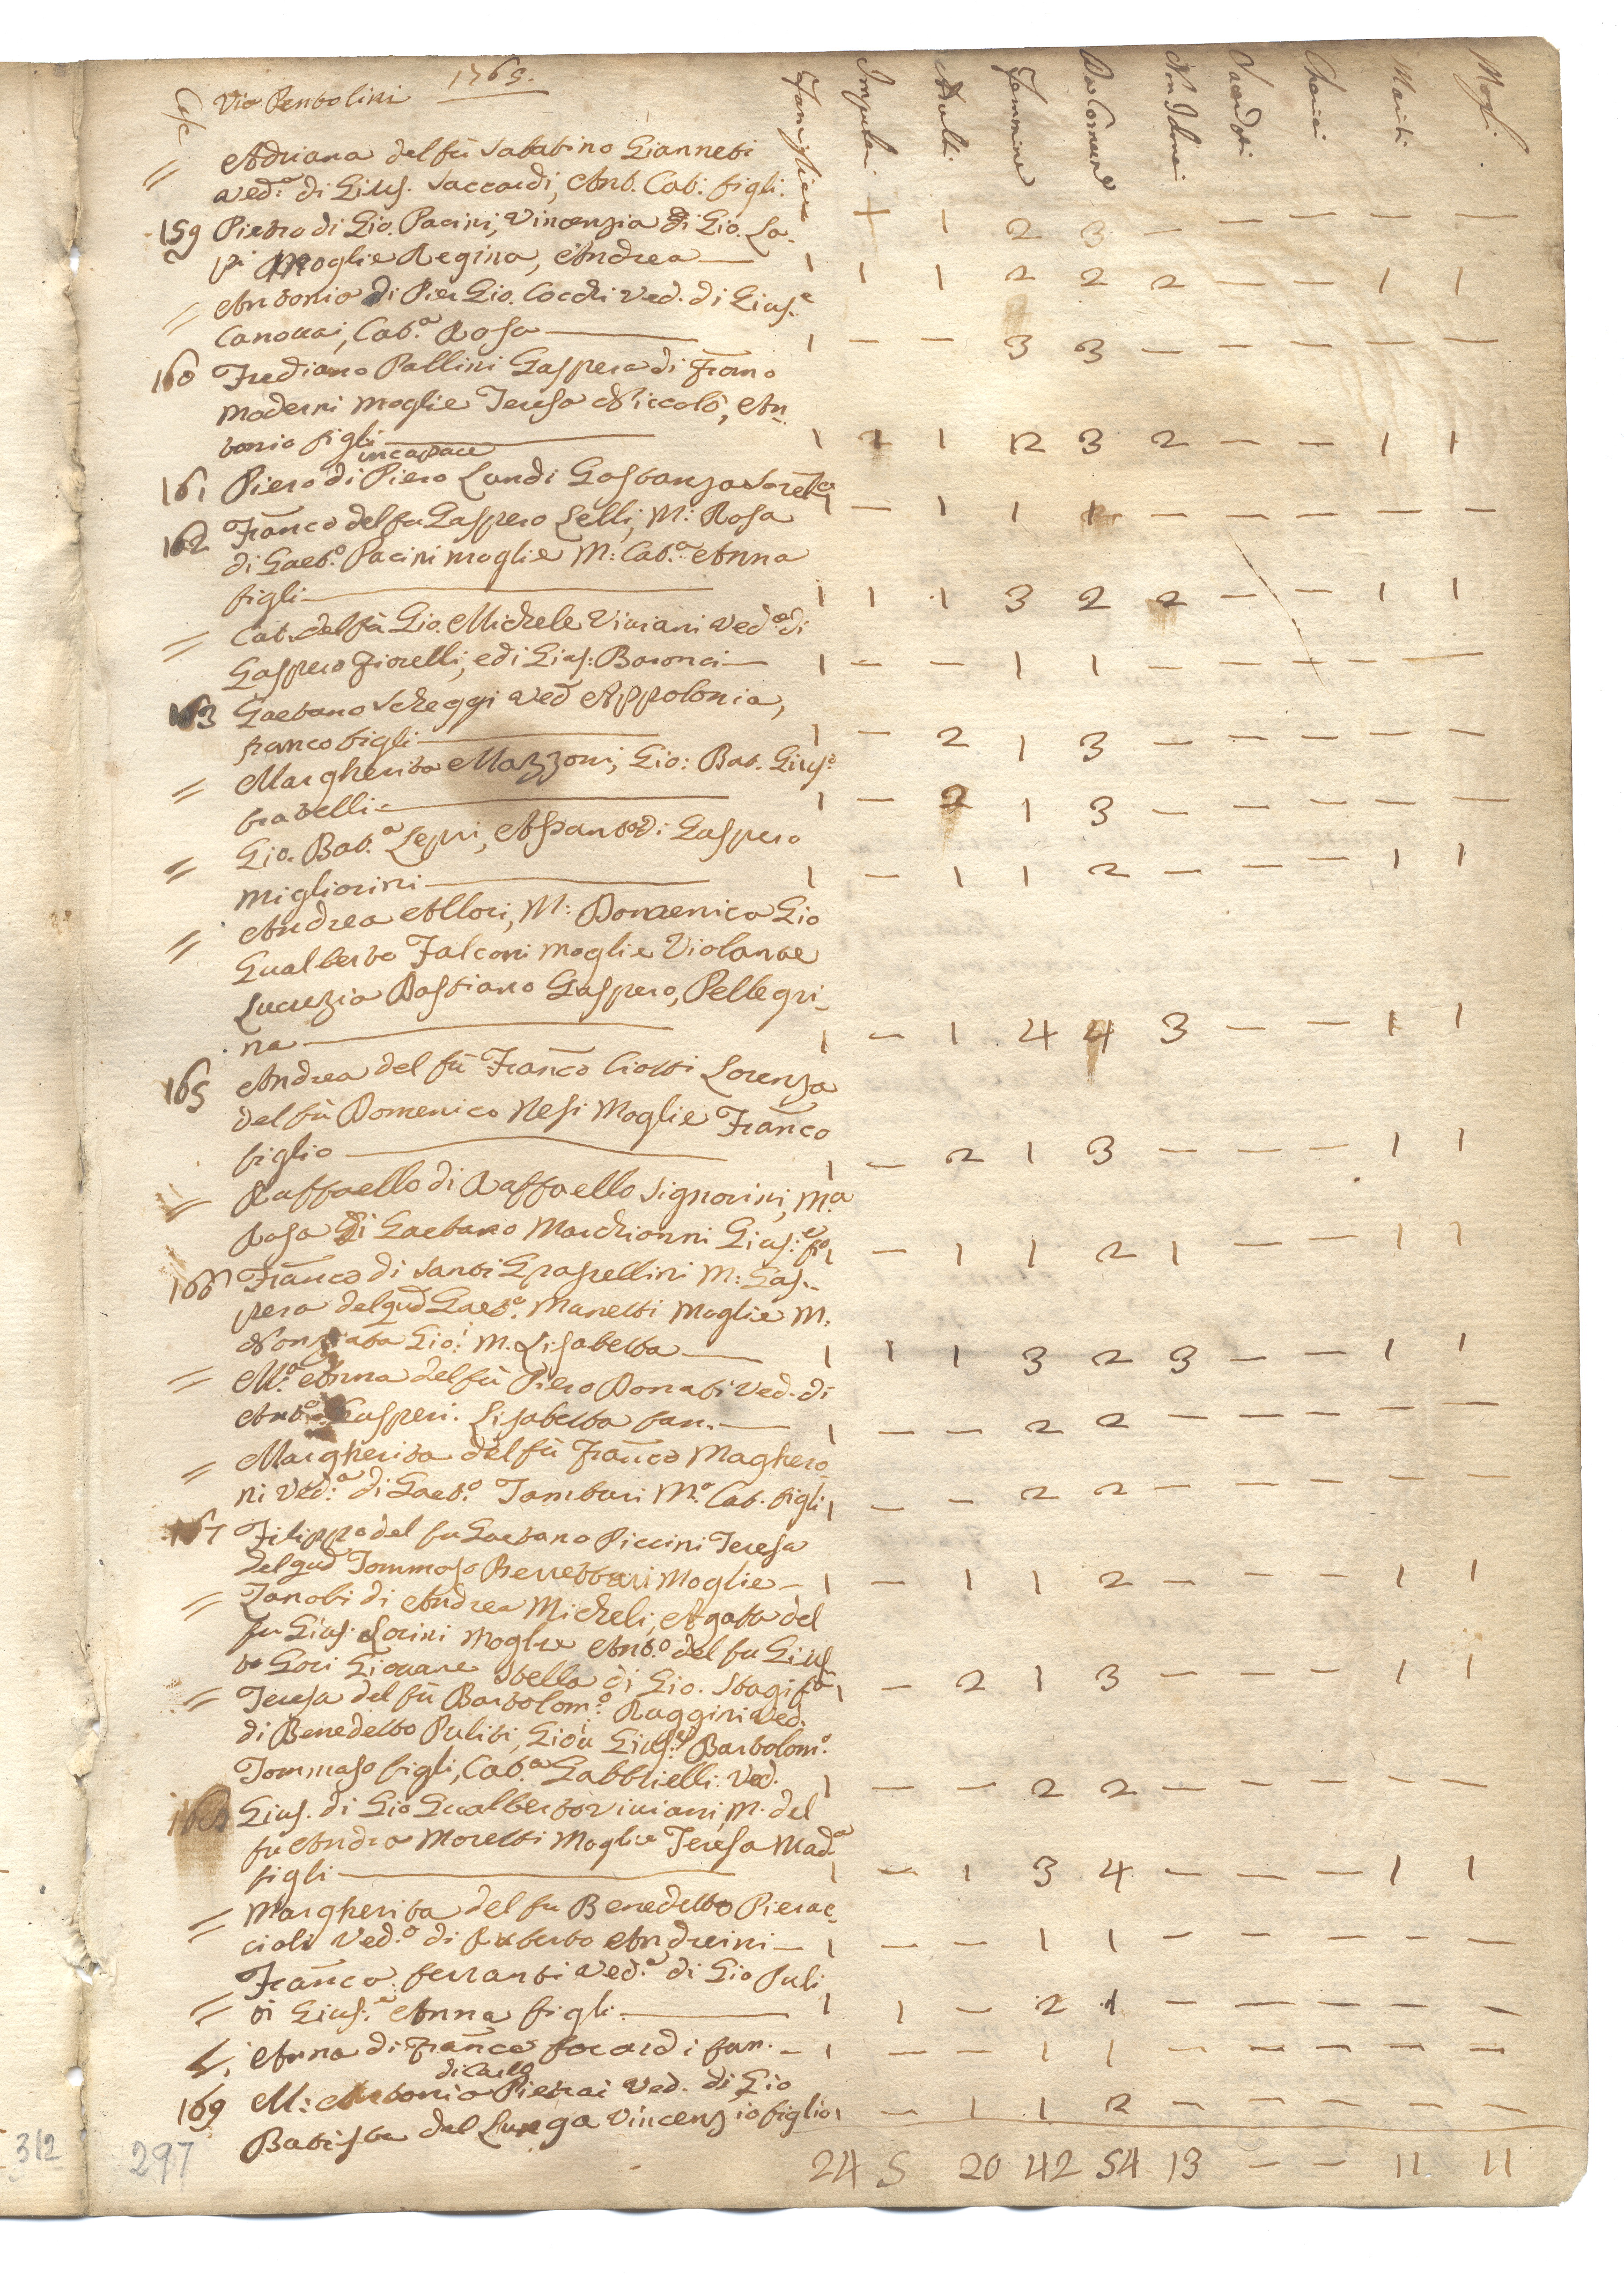 Case Via Pentolini 1765.
Famiglie Impuberi Adulti Femmine Da Comune Non Idonei Sacerdoti Cherici Mariti Mogli
= Adriana del fù Sabatino Giannetti
Ved.ª di Gius. Saccardi, Ant. Cat. figli. 1 + 1 2 3 — — — — —
159 Pietro di Gio. Pacini, Vincenzia di Gio. La-
pi Moglie Regina, Andrea — 1 1 1 2 2 2 — — 1 1
= Antonia di Pier Gio. Cocchi Ved. di Gius.e
Canovai, Cat.ª Rosa — 1 — — 3 3 — — — — —
160 Frediano Pallini Gaspera di Franc
Moderni Moglie Teresa Niccolò, An-
tonio figli — 1 2 1 2 3 2 — — 1 1
incapace
161 Piero di Piero Landi Gostanza Sorella 1 — 1 1 1 — — — — —
162 Franco del fu Gaspero Lelli, M: Rosa
di Gaet.o Pacini moglie M: Cat.ª Anna
figli — 1 1 1 3 2 2 — — 1 1
= Cat. del fù Gio. Michele Viviani Ved.ª di
Gaspero Fiorelli, e di Gius: Baronci — 1 — — 1 1 — — — — —
163 Gaetano Scheggi Ved Appolonia,
franco figli — 1 — 2 1 3 — — — — —
= Margherita Mazzoni, Gio: Bat. Gius.e
fratelli — 1 — 2 1 3 — — — — —
= Gio. Bat.ª Lepri, Assunta di Gaspero
Migliorini — 1 — 1 1 2 — — — 1 1
= Andrea Allori, M: Domenica Gio
Gualberto Falconi moglie Violante
Lucrezia Bastiano Gaspero, Pellegri-
na — 1 — 1 4 4 3 — — 1 1
165 Andrea del fù Franco Ciotti Lorenza
del fù Domenico Nesi Moglie Franco
figlio — 1 — 2 1 3 — — — 1 1
= Raffaello di Raffaello Signorini, M.a
Rosa di Gaetano Marchionni Gius:e fio 1 — 1 1 2 1 — — 1 1
166 Franco di Santi Grassellini M: Gas-
pera del qud Gaet.o Manetti Moglie M:
Nonziata Gio: M. Lisabetta — 1 1 1 3 2 3 — — 1 1
= M.ª Anna del fù Piero Donati Ved. di
Ant.o Gasperi. Lisabetta fan. — 1 — — 2 2 — — — — —
= Margherita del fù Franco Maghero
ni Ved.ª di Gaet.o Tamburi M.ª Cat. figli 1 — — 2 2 — — — — —
167 Filippo del fu Gaetano Piccini Teresa
del qud Tommaso Berrettari Moglie — 1 — 1 1 2 — — — 1 1
= Zanobi di Andrea Micheli, Agata del
fu Gius. Lorini Moglie Ant.o del fu Gius
Gori Giovane Stella di Gio. Stagi fan 1 — 2 1 3 — — — 1 1
= Teresa del fù Bartolom.o Ruggini Ved.
di Benedetto Puliti, Gio: Gius.e Bartolom.o
Tommaso figli, Cat.ª Gabbrielli Ved. 1 — — 2 2 — — — — —
168 Gius. di Gio Gualberto Viviani, M. del
fu Andrea Moretti Moglie Teresa Mad.ª
figli — 1 — 1 3 4 — — — 1 1
= Margherita del fu Benedetto Pierac-
cioli Ved.ª di Ruberto Andreini — 1 — — 1 1 — — — — —
Franca ferranti Ved.ª di Gio Puli
= ti Gius.e Anna figli — 1 1 — 2 1 — — — — —
= Anna di franco focardi fan. — 1 — — 1 1 — — — — —
di Carlo
169 M: Antonia Pierai Ved. di Gio
Batista del Lunga Vincenzio figlio 1 — 1 1 2 — — — — —
24 5 20 42 54 13 — — 11 11
312 297